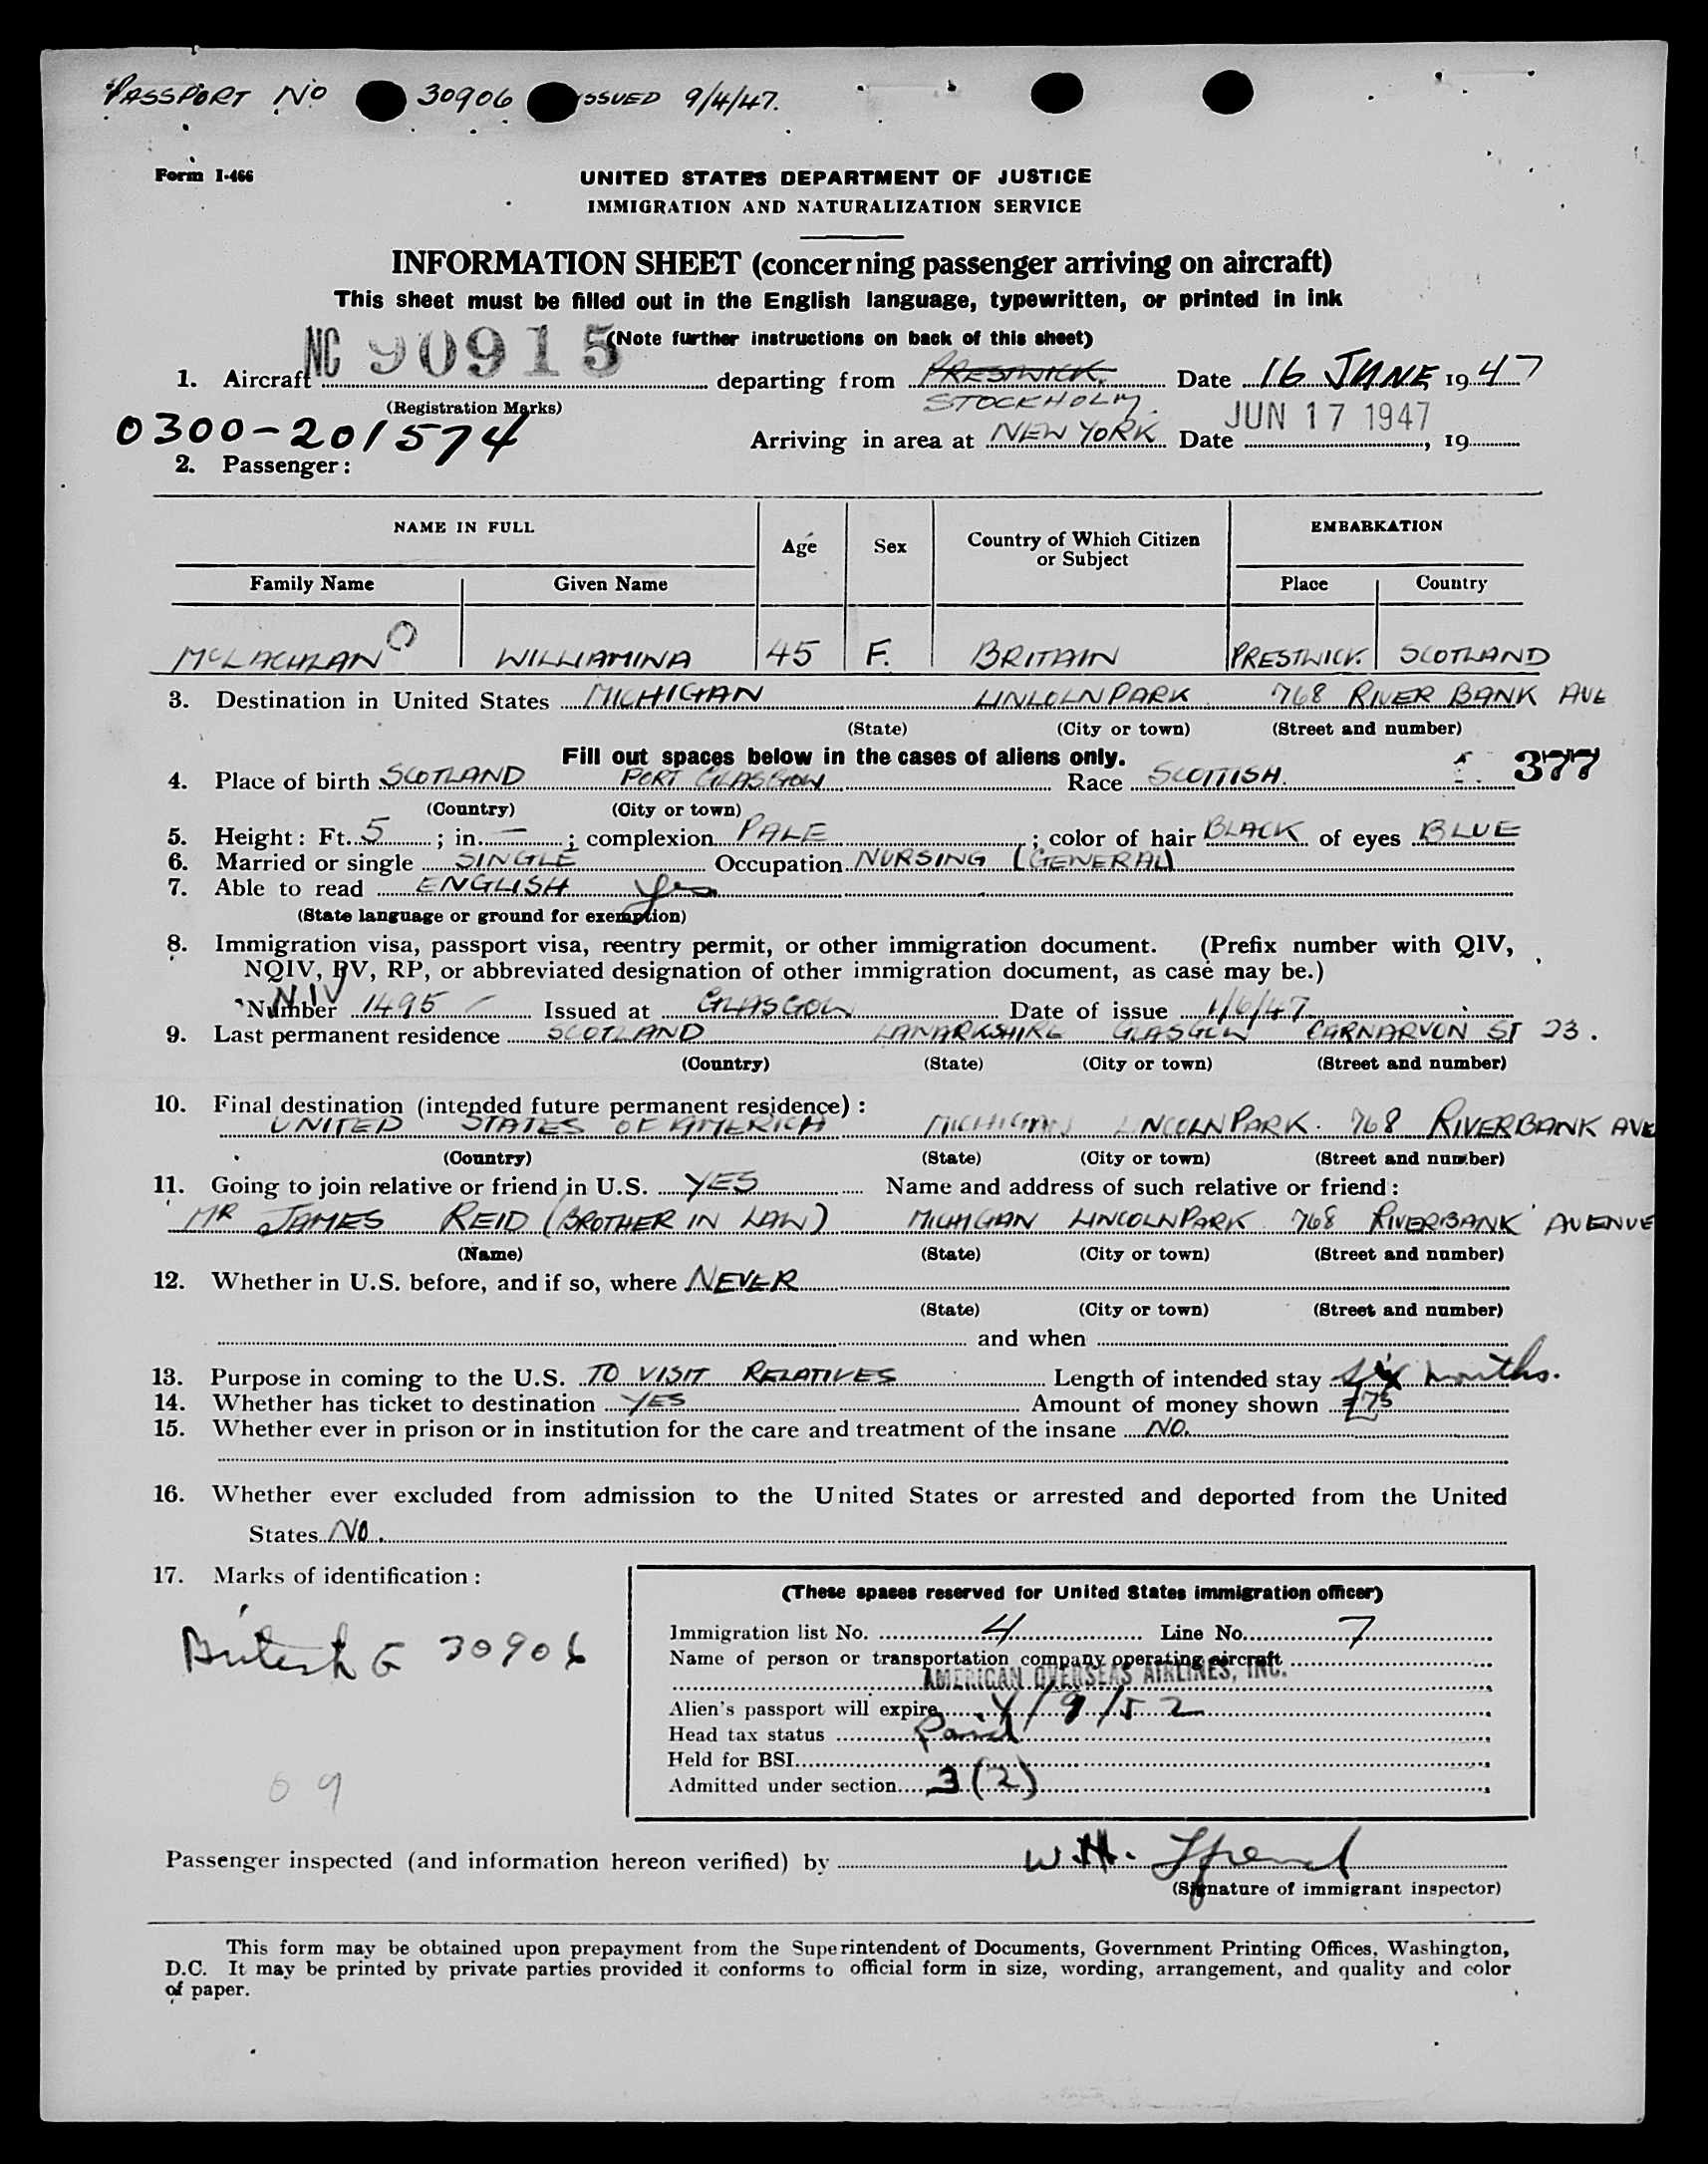 PASSPORT No 30906 ISSUED 9/4/47.
Form I-466
UNITED STATES DEPARTMENT OF JUSTICE
IMMIGRATION AND NATURALIZATION SERVICE
INFORMATION SHEET (concerning passenger arriving on aircraft)
This sheet must be filled out in the English language, typewritten, or printed in ink
(Note further instructions on back of this sheet)
1. Aircraft NC 90915 departing from PRESTWICK. Date 16 JUNE, 1947
(Registration Marks) STOCKHOLM.
0300-201574 Arriving in area at NEW YORK Date JUN 17 1947, 19
2. Passenger:
NAME IN FULL Age Sex Country of Which Citizen or Subject EMBARKATION
Family Name Given Name Place Country
McLACHLAN WILLIAMINA 45 F. BRITAIN PRESTWICK. SCOTLAND
3. Destination in United States MICHIGAN LINCOLN PARK 768 RIVER BANK AVE
(State) (City or town) (Street and number)
Fill out spaces below in the cases of aliens only.
377
4. Place of birth SCOTLAND PORT GLASGOW Race SCOTTISH.
(Country) (City or town)
5. Height: Ft. 5; in. —; complexion PALE; color of hair BLACK of eyes BLUE
6. Married or single SINGLE Occupation NURSING (GENERAL)
7. Able to read ENGLISH yes
(State language or ground for exemption)
8. Immigration visa, passport visa, reentry permit, or other immigration document. (Prefix number with QIV,
NQIV, PV, RP, or abbreviated designation of other immigration document, as case may be.)
NIV
Number 1495 Issued at GLASGOW Date of issue 1/6/47
9. Last permanent residence SCOTLAND LANARKSHIRE GLASGOW CARNARVON ST 23.
(Country) (State) (City or town) (Street and number)
10. Final destination (intended future permanent residence):
UNITED STATES OF AMERICA MICHIGAN LINCOLN PARK. 768 RIVERBANK AVE
(Country) (State) (City or town) (Street and number)
11. Going to join relative or friend in U.S. YES Name and address of such relative or friend:
MR JAMES REID (BROTHER IN LAW) MICHIGAN LINCOLN PARK 768 RIVERBANK AVENUE
(Name) (State) (City or town) (Street and number)
12. Whether in U.S. before, and if so, where NEVER
(State) (City or town) (Street and number)
and when
13. Purpose in coming to the U.S. TO VISIT RELATIVES Length of intended stay six months.
14. Whether has ticket to destination YES Amount of money shown 75
15. Whether ever in prison or in institution for the care and treatment of the insane NO.
16. Whether ever excluded from admission to the United States or arrested and deported from the United
States NO.
17. Marks of identification:
British G 30906
09
(These spaces reserved for United States immigration officer)
Immigration list No. 4 Line No. 7
Name of person or transportation company operating aircraft
AMERICAN OVERSEAS AIRLINES, INC.
Alien's passport will expire 4/9/52
Head tax status Paid
Held for BSI
Admitted under section 3(2)
Passenger inspected (and information hereon verified) by W.H.
(Signature of immigrant inspector)
This form may be obtained upon prepayment from the Superintendent of Documents, Government Printing Offices, Washington,
D.C. It may be printed by private parties provided it conforms to official form in size, wording, arrangement, and quality and color
of paper.